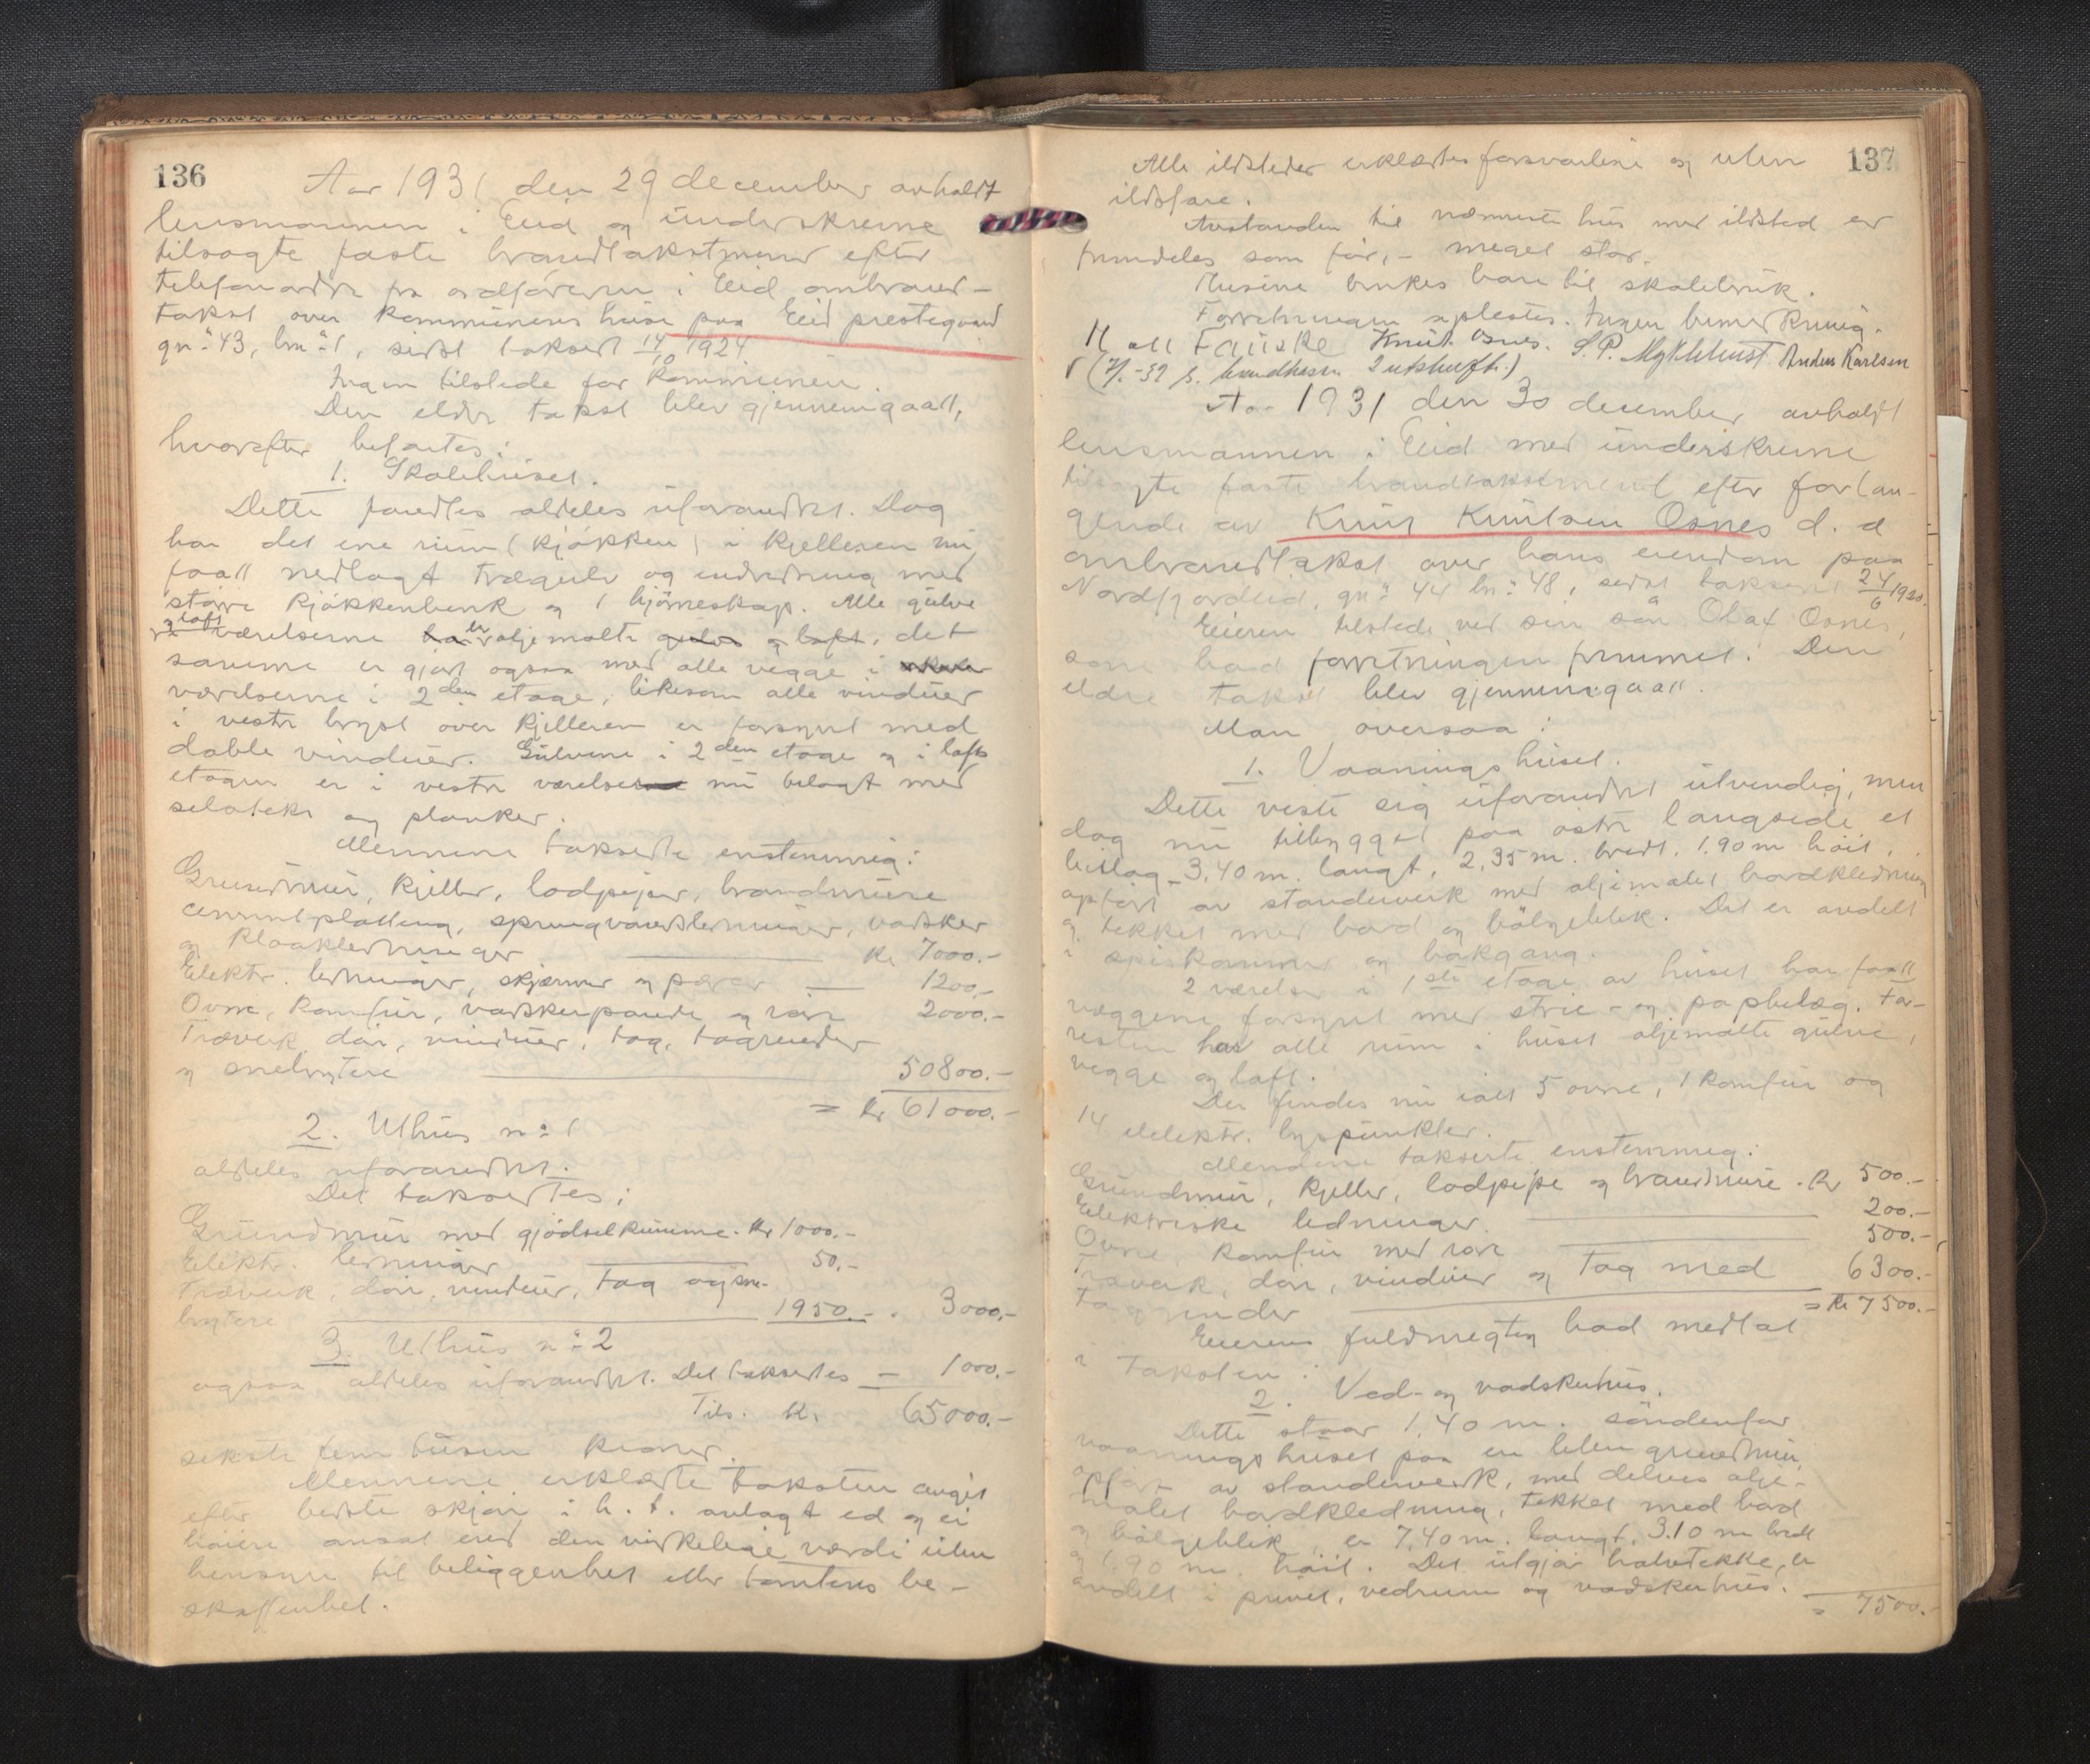 136
Aar 1931 den 29 december avholdt
lensmannen i Eid og underskrevne
tilsagte faste brandtakstmenn efter
telefonordre fra ordføreren i Eid ombrand-
takst over kommunens huse paa Eid prestegaard
gn: 43, bn: 1, sidst takseret 14/10 1924.
Ingen tilstede for kommunen.
Den eldre takst blev gjennemgaatt,
hvorefter befartes:
1. Skolehuset.
Dette fandtes aldeles uforandret. Dog
har det ene rum (kjøkken) i kjelleren nu
faatt nedlagt trægulv og indredning med
større kjøkkenbenk og 1 hjørneskap. Alle gulve
og loft
i værelserne har er oljemalte gulve og loft, det
samme er gjort ogsaa med alle vegge i
værelserne i 2den etage, likesom alle vinduer
i vestre bryst over kjelleren er forsynt med
doble vinduer. Gulvene i 2den etage og i lofts
etagen er i vestre værelser nu belagt med
seloteks og planker.
Mennene takserte enstemmig:
Grundmur, kjeller, lodpiper, brandmure
cementplatting, springvandsledninger, vadsker
og kloakledninger Kr 7000.-
Elektr. ledninger, skjærmer og pærer — 1200.-
Ovne, komfur, vadskerpande og rør 2000.-
Træverk, dør, vinduer, tag, tagrender
og snebrytere 50800.-
= Kr 61000.-
2. Uthus no 1
aldeles uforandret.
Det taksertes:
Grundmur med gjødselkumme. Kr 1000.-
Elektr. ledninger 50.-
Træverk, dør, vinduer, tag og sne-
brytere 1950.- . 3000.-
3. Uthus no 2
ogsaa aldeles uforandret. Det taksertes — 1000.-
Tils. kr. 65000.-
seksti fem tusen kroner.
Mennene erklærte taksten avgit
efter beste skjøn i h. t. avlagt ed og ei
høiere ansat end den virkelige værdi uten
hensyn til beliggenhet eller tomtens be-
skaffenhet.
137
Alle ildsteder erklærtes forsvarlige og uten
ildsfare.
Avstanden til nærmeste hus med ildsted er
fremdeles som før, - meget stor.
Husene brukes bare til skolebruk.
Forretningen oplestes. Ingen bemerkning.
N all Fauske Knut Osnes. S. P. Myklebust Anders Karlsen
(7/1-32 s. brandkassen 2 utskrifter.)
Aar 1931 den 30 december avholdt
lensmannen i Eid med underskrevne
tilsagte faste brandtakstmenn efter forlan-
gende av Knut Knutsen Osnes d. e
ombrandtakst over hans eiendom paa
Nordfjordeid, gn: 44 bn: 48, sidst takseret 24/6 1920.
Eieren tilstede ved sin søn Olaf Osnes,
som bad forretningen fremmet. Den
eldre takst blev gjennemgaatt.
Man oversaa:
1. Vaaningshuset.
Dette viste sig uforandret utvendig, men
dog nu tilbygget paa østre langside et
bislag 3.40 m. langt, 2.35 m. bredt, 1.90 m høit,
opført av standerverk med oljemalet bordkledning
og tekket med bord og bølgeblik. Det er avdelt
i spiskammer og bakgang.
2 værelser i 1ste etage av huset har faatt
væggene forsynt med strie- og papbelæg. For-
resten har alle rum i huset oljemalte gulve,
vegge og loft.
Der findes nu ialt 5 ovne, 1 komfur og
14 elektr. lyspunkter.
Mendene takserte enstemmig:
Grundmur, kjeller, lodpipe og brandmure. Kr 500.-
Elektriske ledninger. 200.-
Ovne, komfur med rør 500.-
Træverk, dør, vinduer og tag med 6300.-
tagrender = Kr 7500.-
Eierens fuldmegtig bad medtat
i taksten:
2. Ved- og vadskerhus.
Dette staar 1,40 m. søndenfor
vaaningshuset paa en liten grundmur,
opført av standerverk, med delvis olje-
malet bordkledning, tekket med bord
og bølgeblik, er 7,40 m. langt, 3.10 m bredt
og 1,90 m. høit. Det utgjør halvtekke, er
avdelt i privet, vedrum og vadskerhus.
= 7500.-